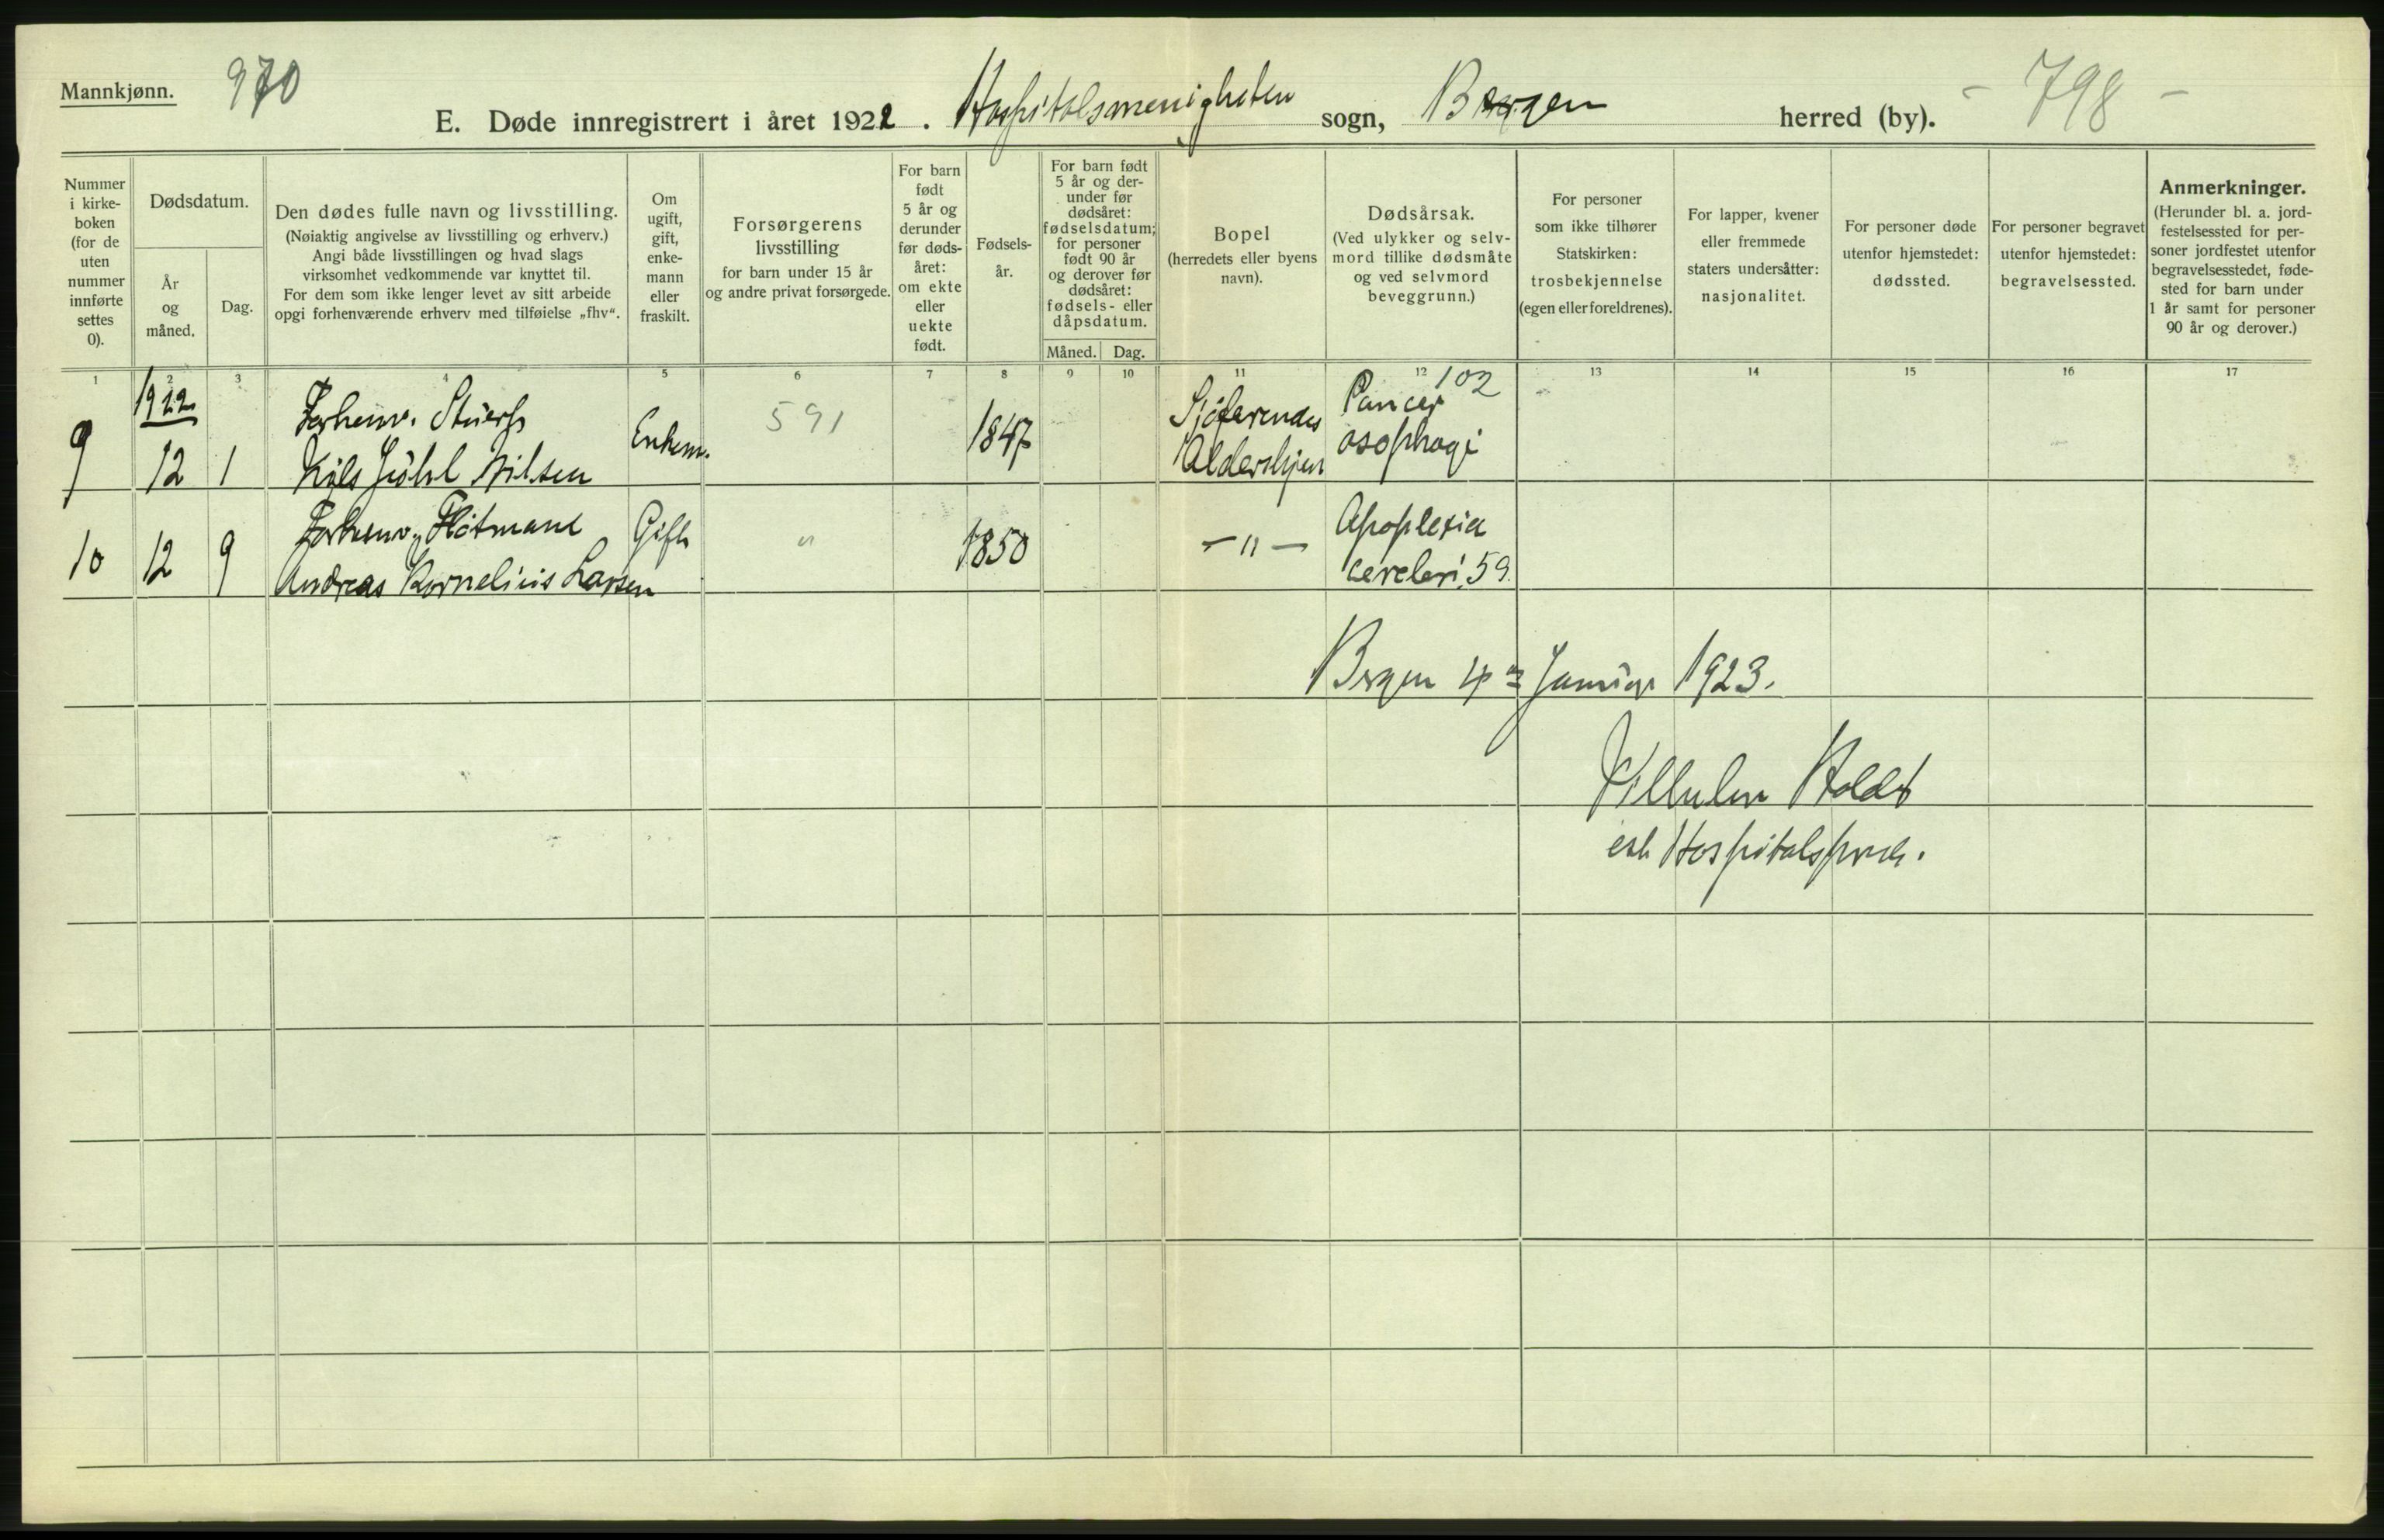 Mannkjønn. 970
E. Døde innregistrert i året 1922. Hospitalsmenigheten sogn, Bergen herred (by). - 798 -
Nummer
i kirke-
boken
(for de
uten
nummer
innførte
settes
0).
Dødsdatum.
År
og
måned.
Dag.
Den dødes fulle navn og livsstilling.
(Nøiaktig angivelse av livsstilling og erhverv.)
Angi både livsstillingen og hvad slags
virksomhet vedkommende var knyttet til.
For dem som ikke lenger levet av sitt arbeide
opgi forhenværende erhverv med tilføielse „fhv“.
Om
ugift,
gift,
enke-
mann
eller
fraskilt.
Forsørgerens
livsstilling
for barn under 15 år
og andre privat forsørgede.
For barn
født
5 år og
derunder
før døds-
året:
om ekte
eller
uekte
født.
Fødsels-
år.
For barn født
5 år og der-
under før
dødsåret:
fødselsdatum;
for personer
født 90 år
og derover før
dødsåret:
fødsels- eller
dåpsdatum.
Måned. Dag.
Bopel
(herredets eller byens
navn).
Dødsårsak.
(Ved ulykker og selv-
mord tillike dødsmåte
og ved selvmord
beveggrunn.)
For personer
som ikke tilhører
Statskirken:
trosbekjennelse
(egen eller foreldrenes).
For lapper, kvener
eller fremmede
staters undersåtter:
nasjonalitet.
For personer døde
utenfor hjemstedet:
dødssted.
For personer begravet
utenfor hjemstedet:
begravelsessted.
Anmerkninger.
(Herunder bl. a. jord-
festelsessted for per-
soner jordfestet utenfor
begravelsesstedet, føde-
sted for barn under
1 år samt for personer
90 år og derover.)
1 2 3 4 5 6 7 8 9 10 11 12 13 14 15 16 17
1922
9 12 1
Forhenv. Stuert
Nils Juhl Nilsen
Enkem.
591
1847
Sjøfarendes
Aldershjem
Cancer 102
øsophagi
10 12 9
Forhenv. Flötmand
Andreas Kornelius Larsen
Gift
"
1850
- " -
Apoplexia
cerebri. 59.
Bergen 4de Januar 1923.
Vilhelm Holdt
Hospitalsprest.